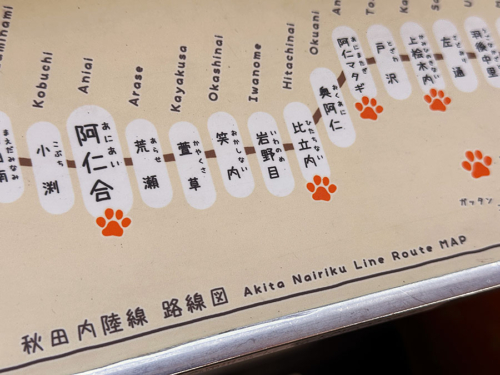 Kobuchi
Aniai
Arase
Kayakusa
Okashinai
Iwanome
Hitachinai
Okuani
まえだみなみ
こぶち
小渕
あにあい
阿仁合
あらせ
荒瀬
かやくさ
萱草
おかしない
笑内
いわのめ
岩野目
ひたちない
比立内
おくあに
奥阿仁
あにまたぎ
阿仁マタギ
とざわ
戸沢
かみひのきない
上桧木内
左通
秋田内陸線 路線図 Akita Nairiku Line Route MAP